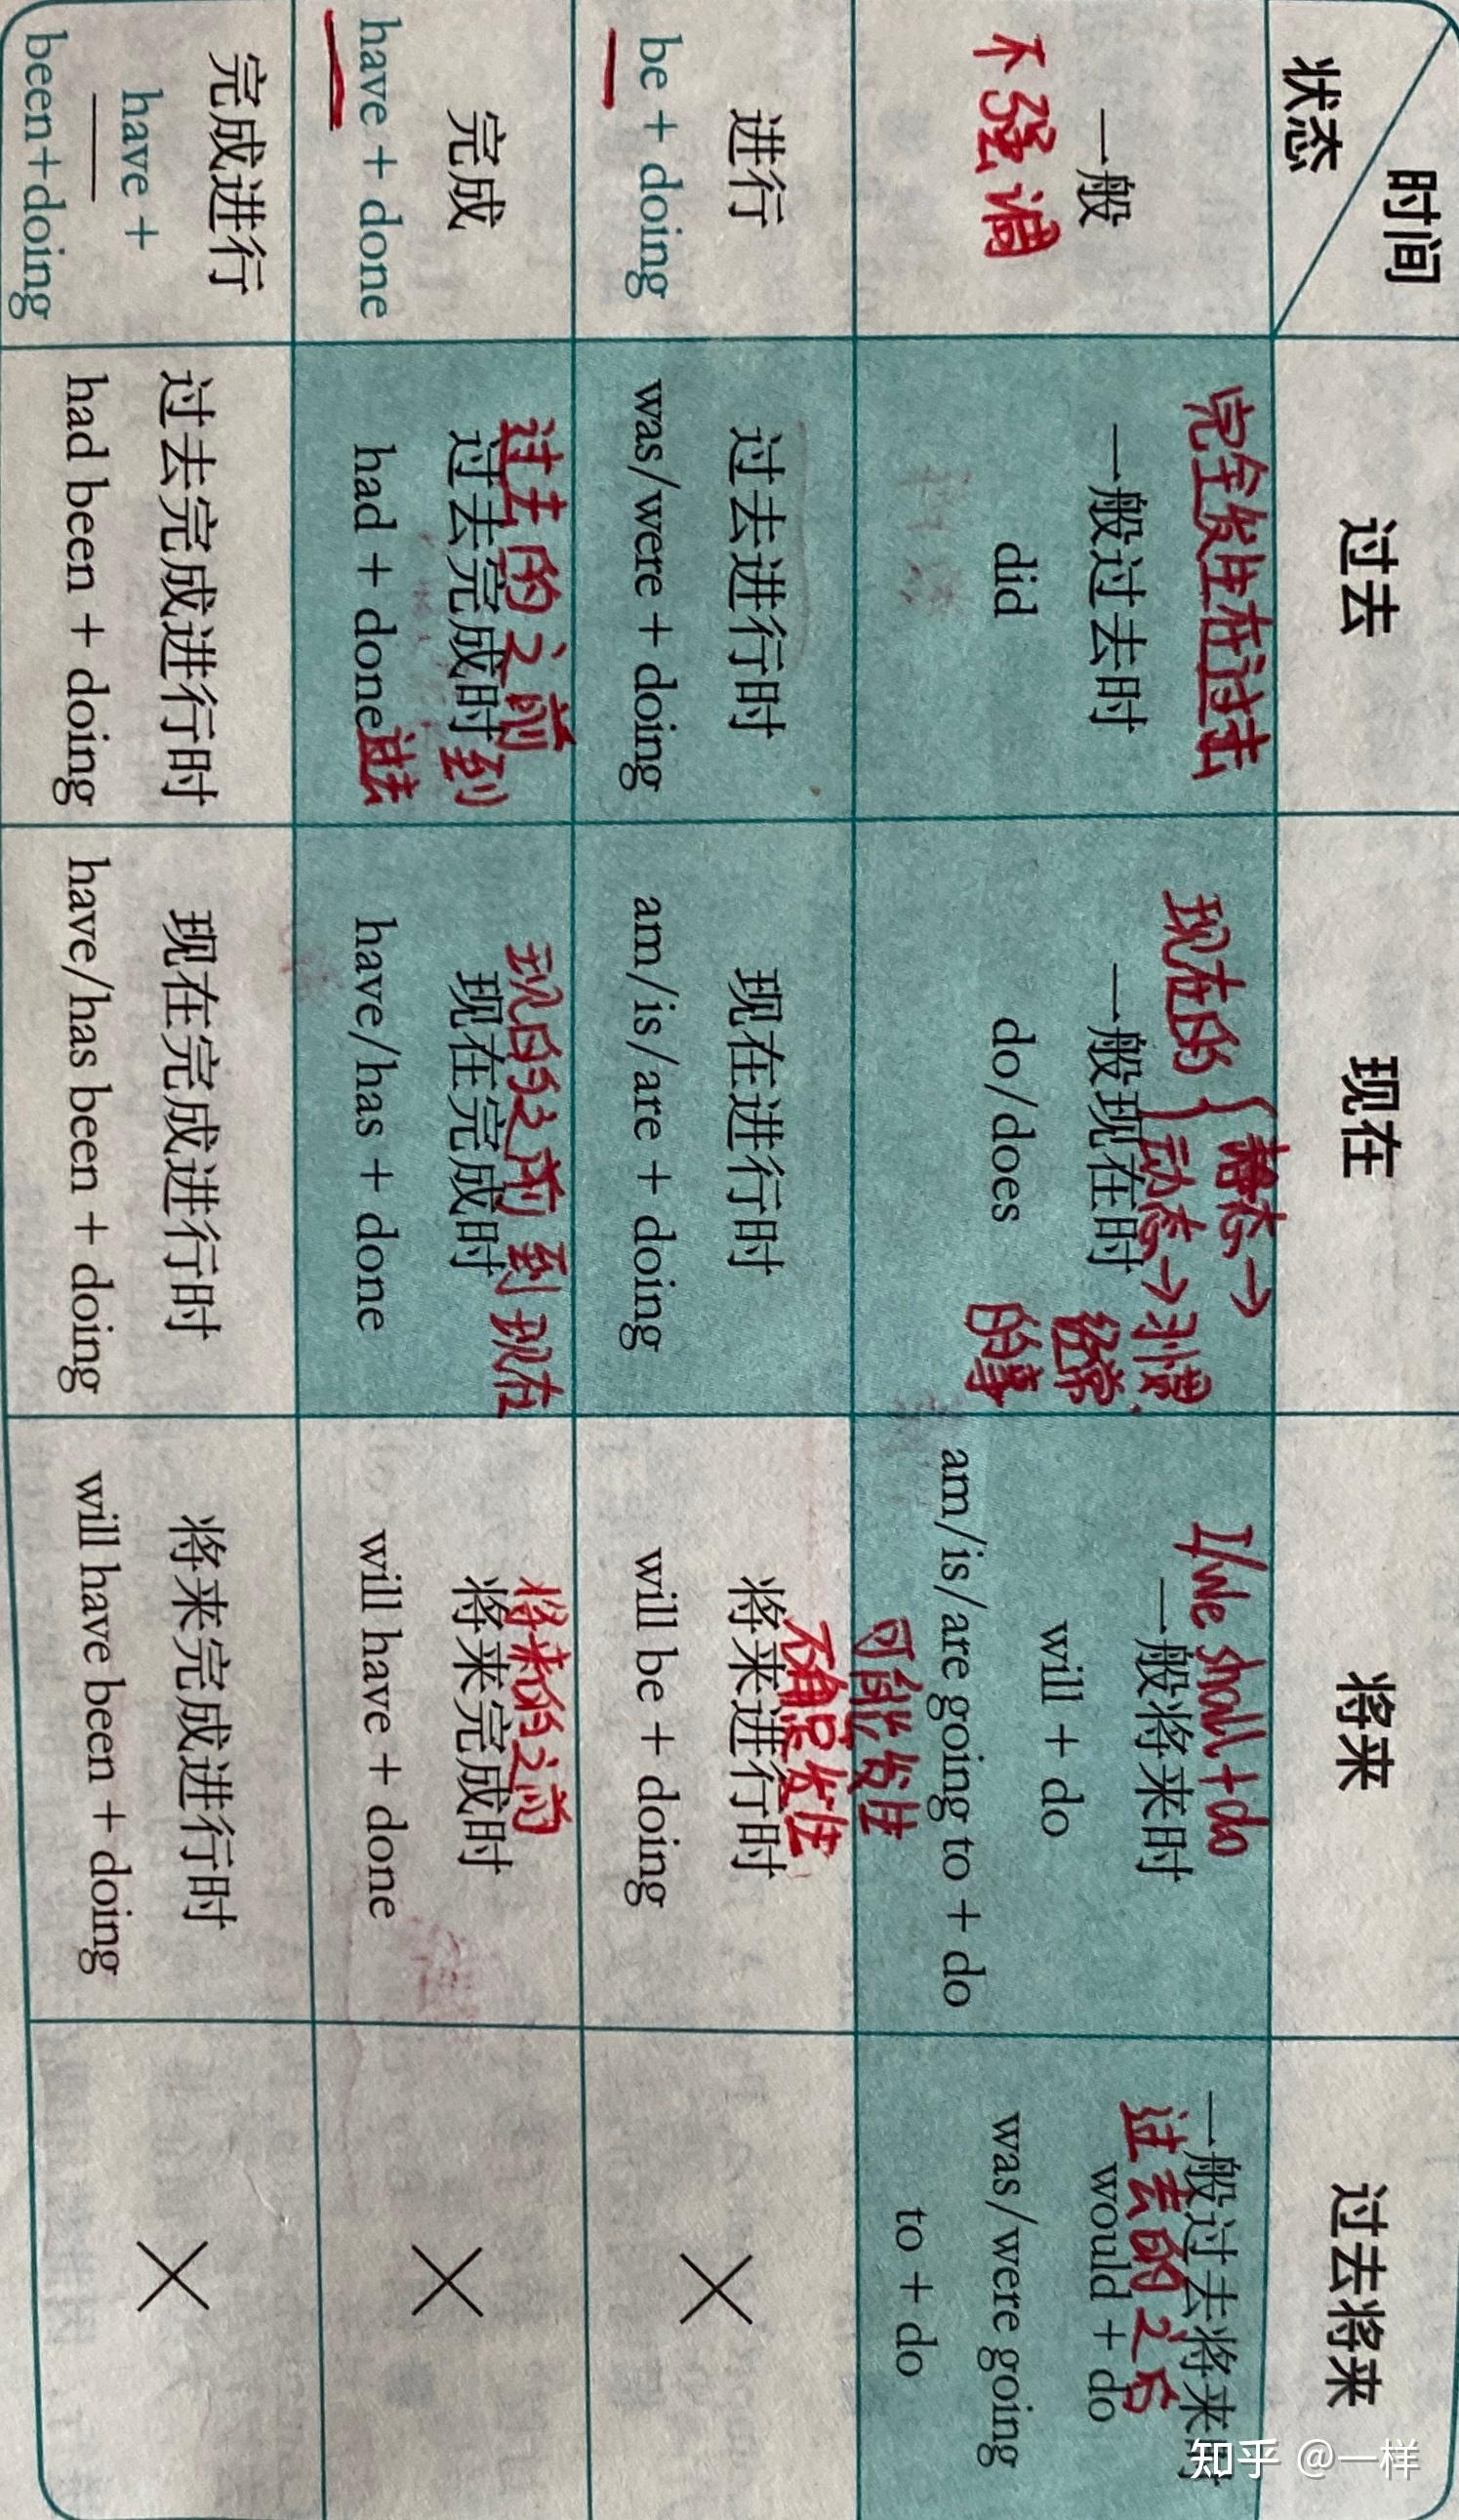 时间
状态
过去
现在
将来
过去将来
一般
不强调
完全发生在过去
一般过去时
did
现在的
静态→
动态→习惯
经常
的事
一般现在时
do/does
I/we shall+do
一般将来时
will + do
am/is/are going to + do
可能发生
一般过去将来时
过去的之后
would + do
was/were going
to + do
进行
be + doing
过去进行时
was/were + doing
现在进行时
am/is/are + doing
不确定发生
将来进行时
will be + doing
×
完成
have + done
过去的之前
到
过去
过去完成时
had + done
现在之前到现在
现在完成时
have/has + done
将来的之前
将来完成时
will have + done
×
完成进行
have +
been+doing
过去完成进行时
had been + doing
现在完成进行时
have/has been + doing
将来完成进行时
will have been + doing
×
知乎 @一样